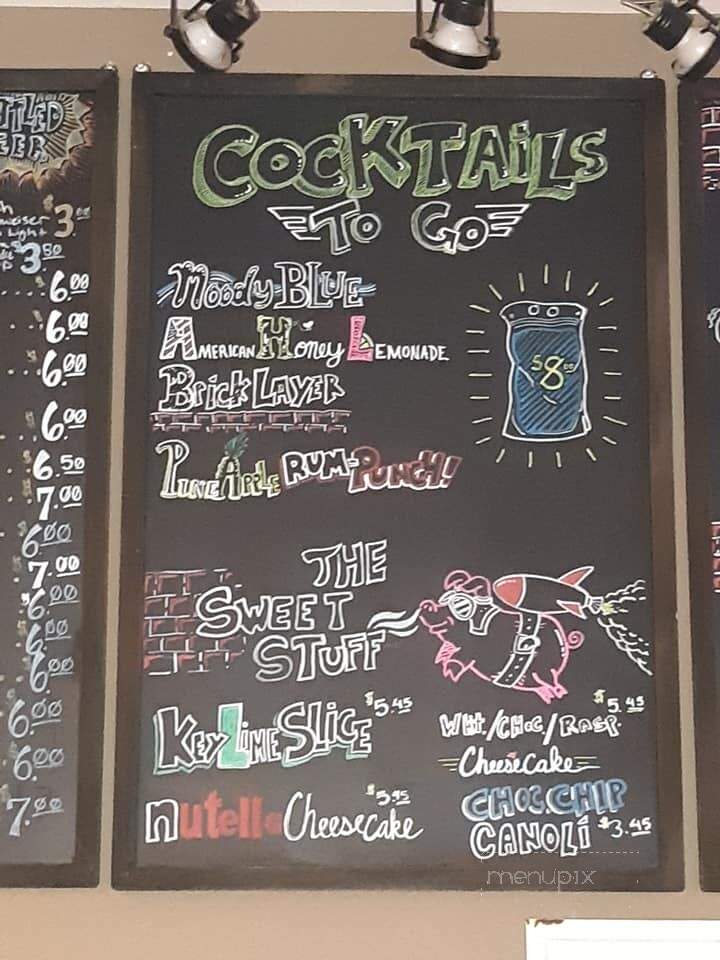 Cocktails
To Go
Moody Blue
American Honey Lemonade
Brick Layer
Pineapple Rum-Punch!
$8.00
The
Sweet
Stuff
Key Lime Slice $5.45
Wht./Choc/Rasp. $5.45
Cheesecake
nutella Cheesecake $5.95
Choc. Chip
Canoli $3.45
Beer
$3.00
Light
$3.50
6.00
6.00
6.00
6.00
6.50
7.00
6.00
7.00
6.00
6.00
6.00
6.00
6.00
7.00
menupix